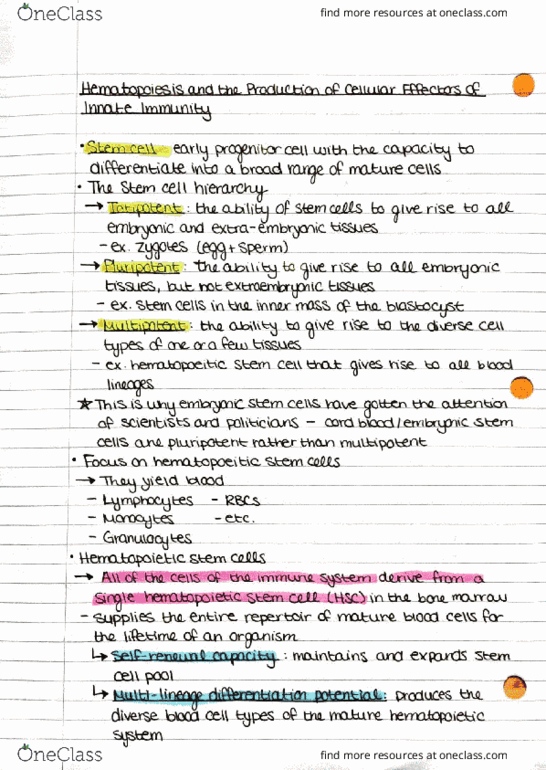 OneClass find more resources at oneclass.com
Hematopoiesis and the Production of Cellular Effectors of
Innate Immunity
• Stem cell - early progenitor cell with the capacity to
differentiate into a broad range of mature cells
• The Stem cell hierarchy
→ Totipotent: the ability of stem cells to give rise to all
embryonic and extra-embryonic tissues
- ex. Zygotes (egg + sperm)
→ Pluripotent: the ability to give rise to all embryonic
tissues, but not extraembryonic tissues
- ex. stem cells in the inner mass of the blastocyst
→ Multipotent: the ability to give rise to the diverse cell
types of one or a few tissues
- ex. hematopoeitic stem cell that gives rise to all blood
lineages
★ This is why embryonic stem cells have gotten the attention
of scientists and politicians - cord blood/embryonic stem
cells are pluripotent rather than multipotent
• Focus on hematopoeitic stem cells
→ They yield blood
- Lymphocytes - RBCs
- Monocytes - etc.
- Granulocytes
• Hematopoietic stem cells
→ All of the cells of the immune system derive from a
single hematopoietic stem cell (HSC) in the bone marrow
- supplies the entire repertoir of mature blood cells for
the lifetime of an organism
↳ Self-renewal capacity: maintains and expands stem
cell pool
↳ Multi-lineage differentiation potential: produces the
diverse blood cell types of the mature hematopoietic
system
OneClass find more resources at oneclass.com